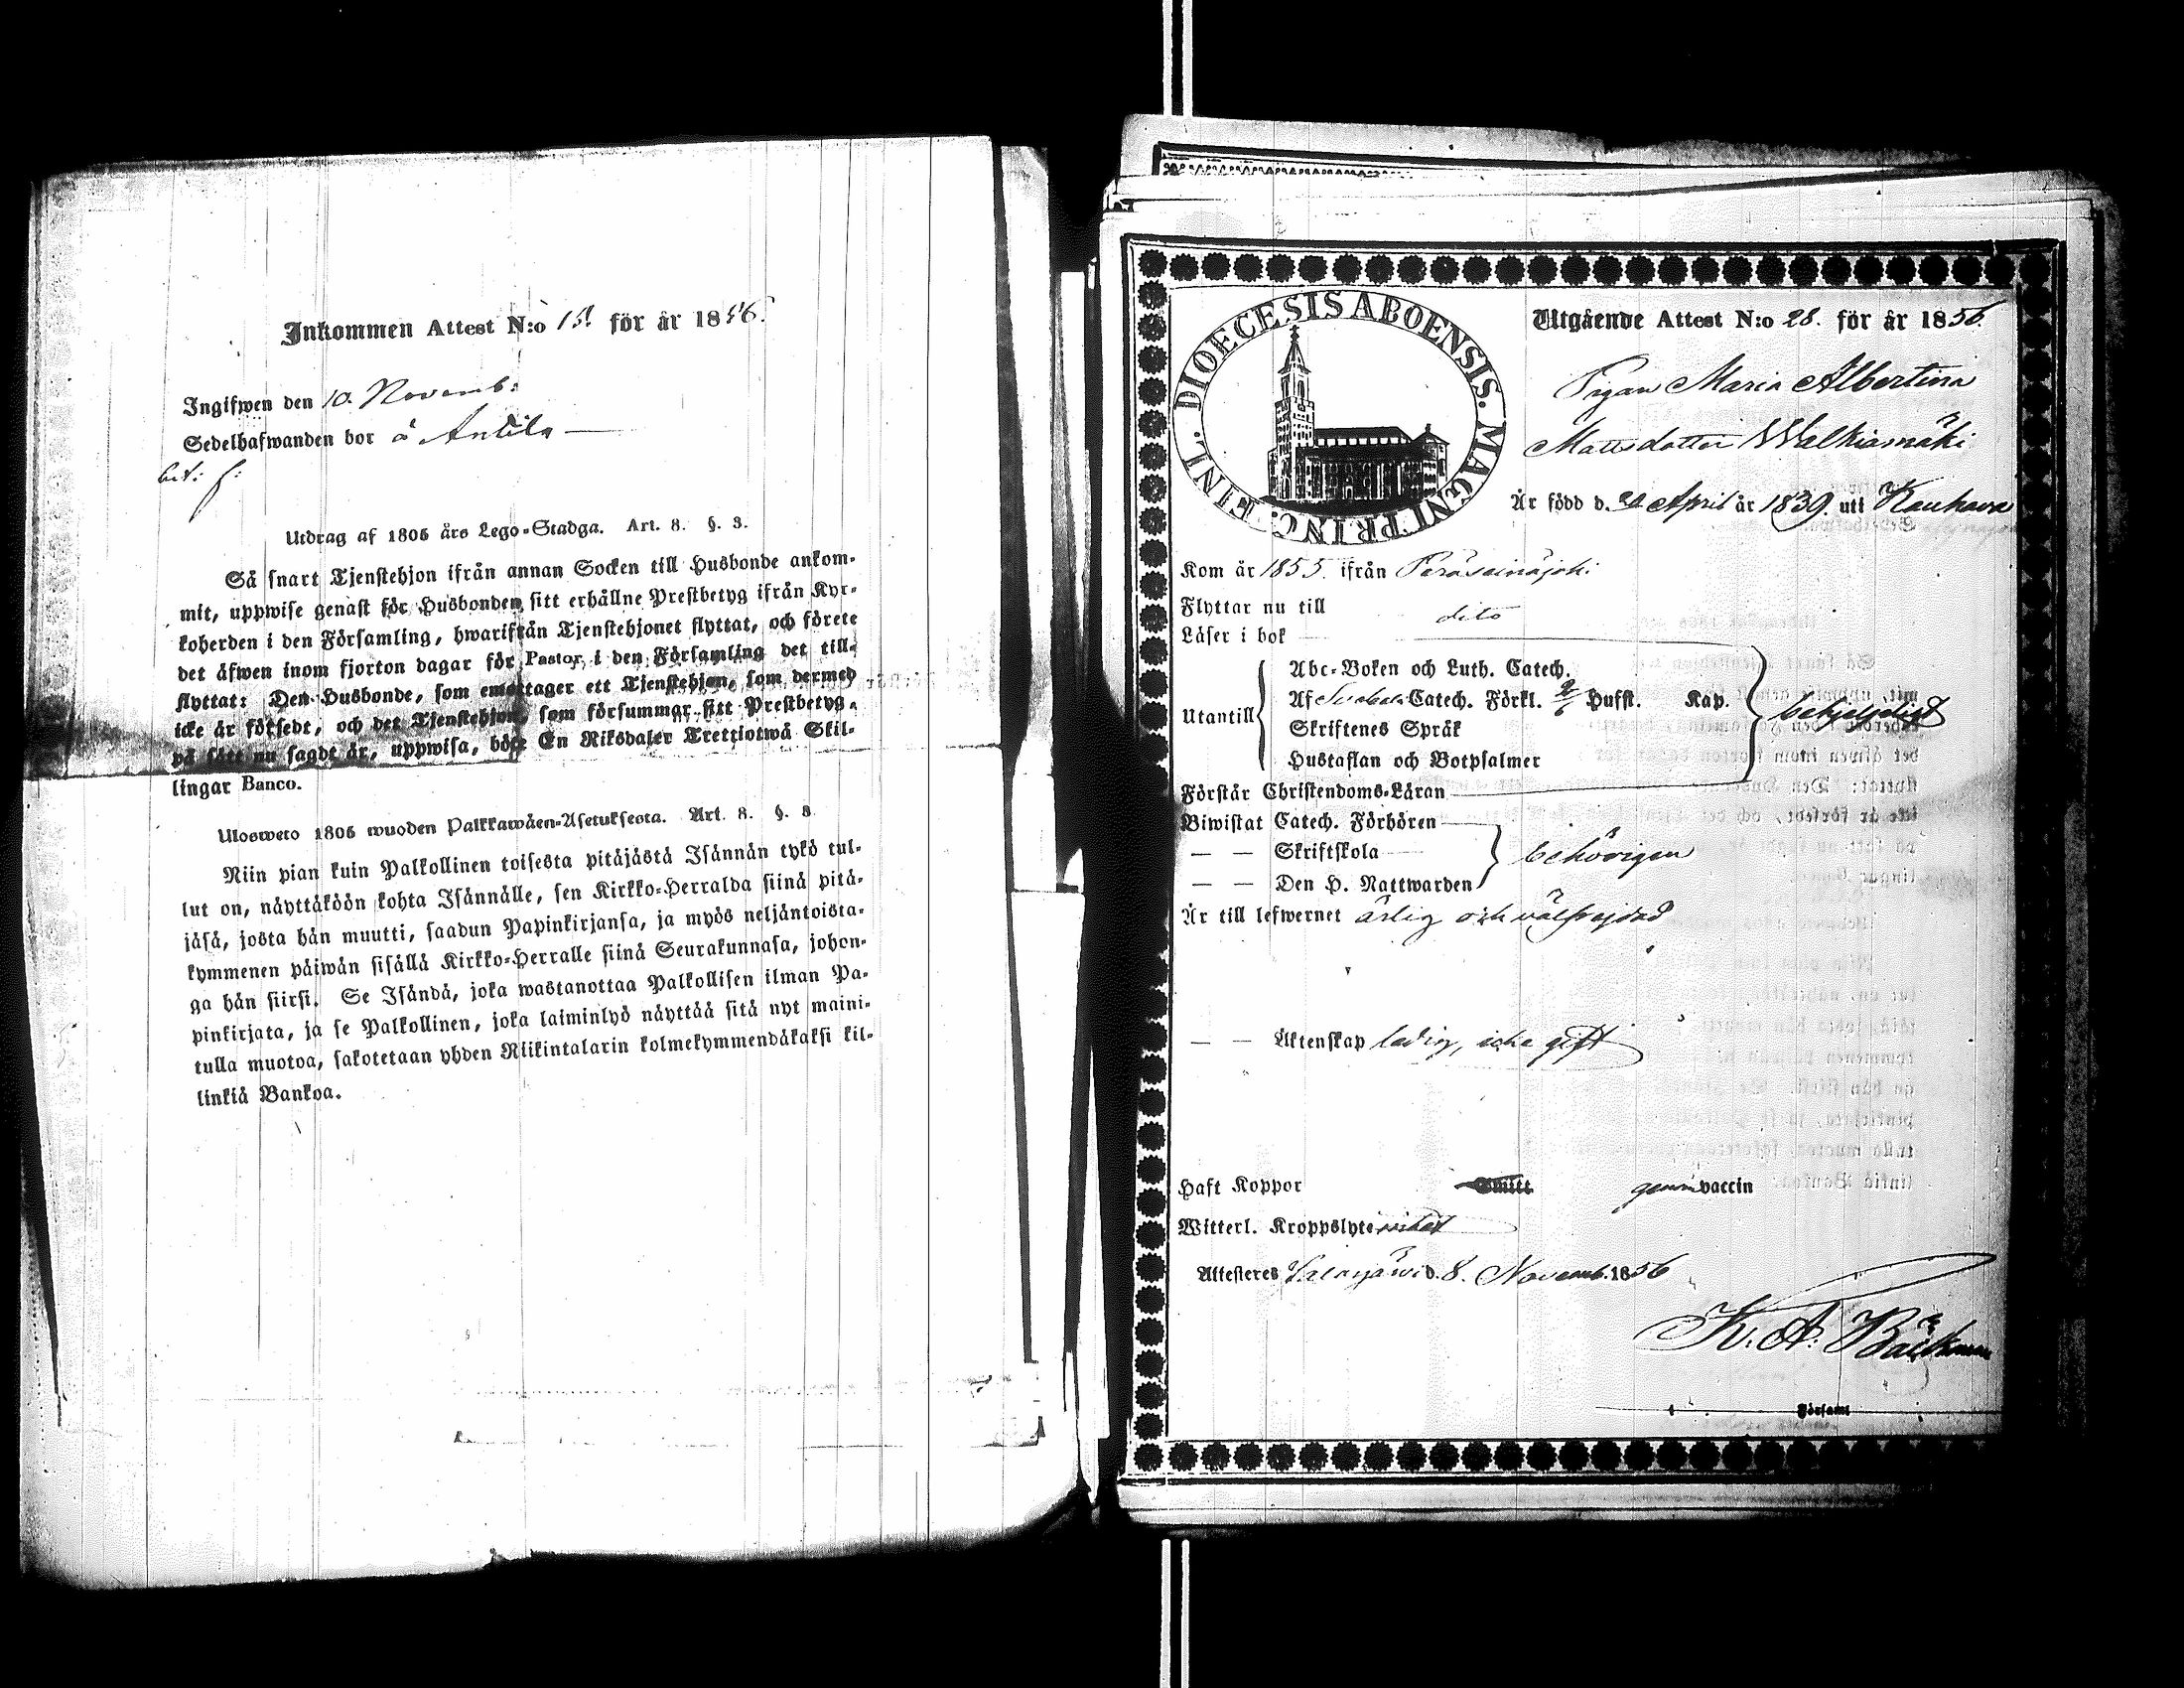 Inkommen Attest N:o 15. för år 1856.
Ingifwen den 10. Novemb:
Sedelhafwanden bor å Anttila
bet: f:
Utdrag af 1805 års Lego-Stadga. Art. 8. §. 3.
Så snart Tjenstehjon ifrån annan Socken till Husbonde ankom-
mit, uppwise genast för Husbonden sitt erhållne Prestbetyg ifrån Kyr-
koherden i den Församling, hwarifrån Tjenstehjonet flyttat, och förete
det äfwen inom fjorton dagar för Pastor i den Församling det till-
flyttat: Den Husbonde, som emottager ett Tjenstehjon, som dermed
icke är försedt, och det Tjenstehjon, som försummar sitt Prestbetyg,
på sätt nu sagdt är, uppwisa, böte En Riksdaler Trettiotwå Skil-
lingar Banco.
Ulosweto 1805 wuoden Palkkawäen-Asetuksesta. Art. 8. §. 3
Niin pian kuin Palkollinen toisesta pitäjästä Isännän tykö tul-
lut on, näyttäköön kohta Isännälle, sen Kirkko-Herralda siinä pitä-
jäsä, josta hän muutti, saadun Papinkirjansa, ja myös neljäntoista-
kymmenen päiwän sisällä Kirkko-Herralle siinä Seurakunnasa, johon-
ga hän siirsi. Se Isändä, joka wastanottaa Palkollisen ilman Pa-
pinkirjata, ja se Palkollinen, joka laiminlyö näyttää sitä nyt maini-
tulla muotoa, sakotetaan yhden Riikintalarin kolmekymmendäkaksi kil-
linkiä Bankoa.
DIOECESIS ABOENSIS. MAGNI PRINC. FINL.
Utgående Attest N:o 28. för år 1856.
Pigan Maria Albertina
Mattsdotter Walkiamäki
Är född d. April år 1839. uti Kauhava
Kom år 1855. ifrån Peräseinäjoki
Flyttar nu till dito
Läser i bok
Abc-Boken och Luth. Catech.
Utantill Af Catech. Förkl. Hufst. Kap.
Skriftenes Språk
Hustaflan och Botpsalmer
Förstår Christendoms-Läran
Biwistat Catech. Förhören
— — Skriftskola behörigen
— — Den H. Nattwarden
Är till lefwernet ärlig och välfrejdad
— — Äktenskap ledig, icke gift
Haft Koppor Smitt genom vaccin
Witterl. Kroppslyte intet
Attesteres d. 8. Novemb. 1856
K. A. Bäckman
i Församl